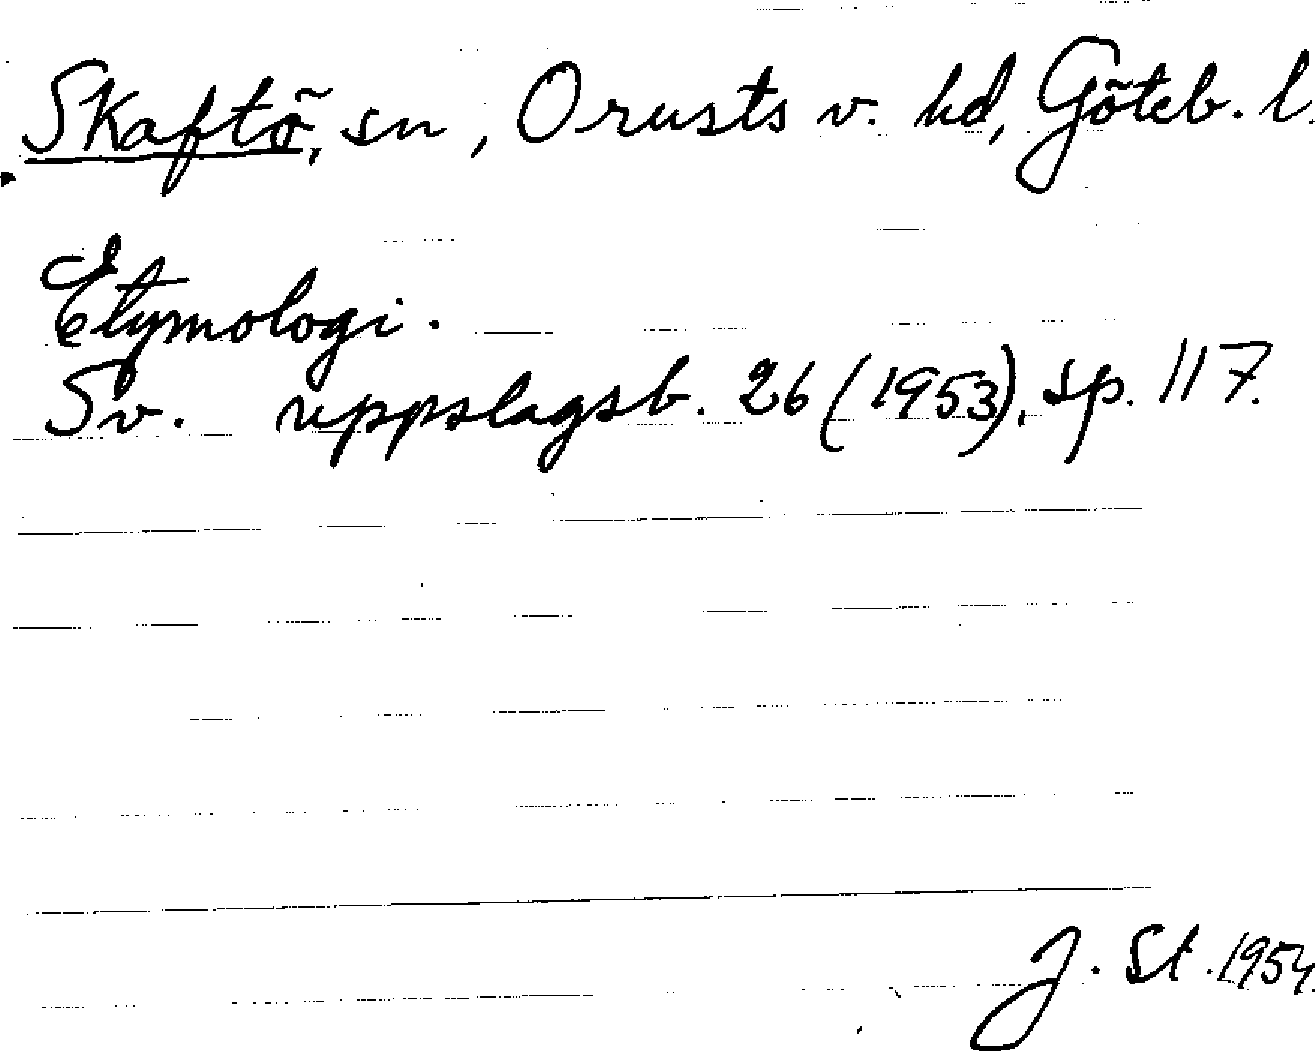 Skaftö, sn, Orusts v. hd, Göteb. l.
Etymologi.
Sv. uppslagsb. 26 (1953), sp. 117.
J. St. 1954.